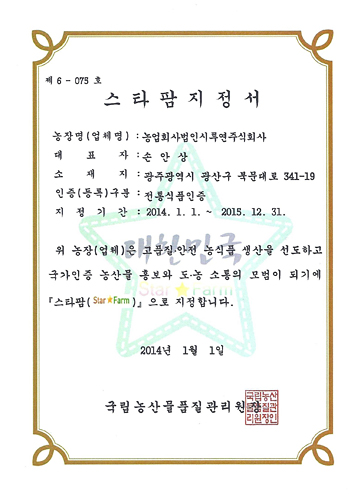 제 6 - 075 호
스타팜지정서
농장명(업체명) : 농업회사법인시루연주식회사
대 표 자 : 손 안 상
소 재 지 : 광주광역시 광산구 북문대로 341-19
인증(등록)구분 : 전통식품인증
지 정 기 간 : 2014. 1. 1. ~ 2015. 12. 31.
대한민국
Star Farm
위 농장(업체)은 고품질·안전 농식품 생산을 선도하고
국가인증 농산물 홍보와 도·농 소통의 모범이 되기에
『스타팜( Star★Farm )』으로 지정합니다.
2014년 1월 1일
국립농산물품질관리원장
국립농산
물품질관
리원장인